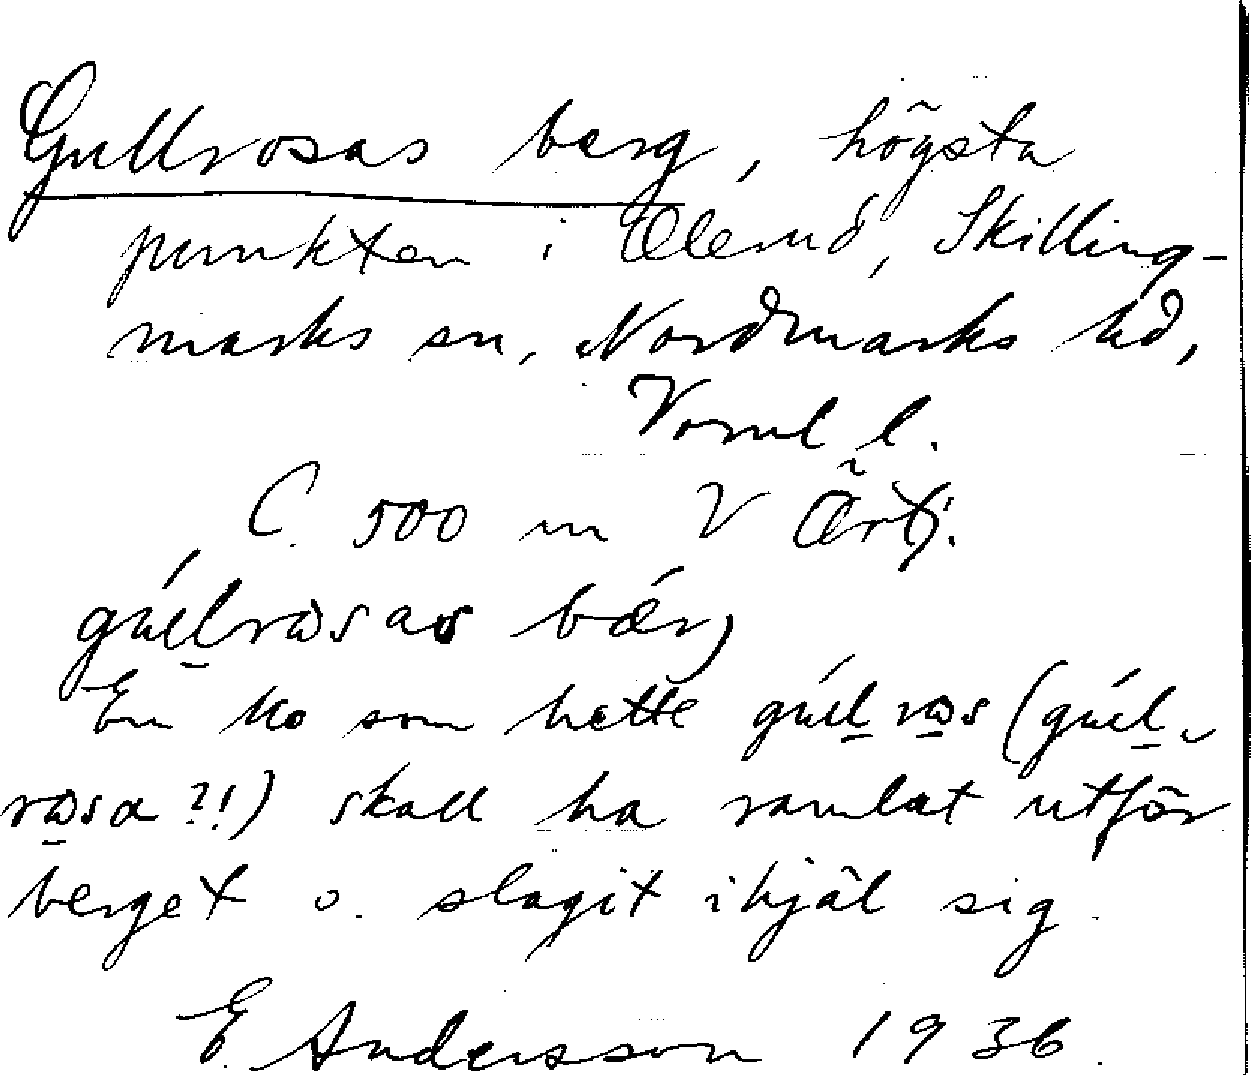 Gullrosas berg, högsta
punkten i Ölerud, Skilling-
marks sn, Nordmarks hd,
Varml l.
C. 500 m V Ärtj.
En ko som hette
skall ha ramlat utför
berget o. slagit ihjäl sig.
E. Andersson 1936.